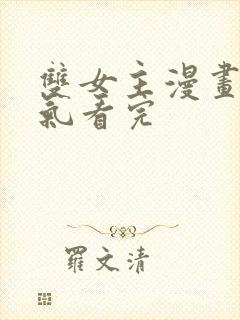 雙女主漫畫
氣看完
羅文清